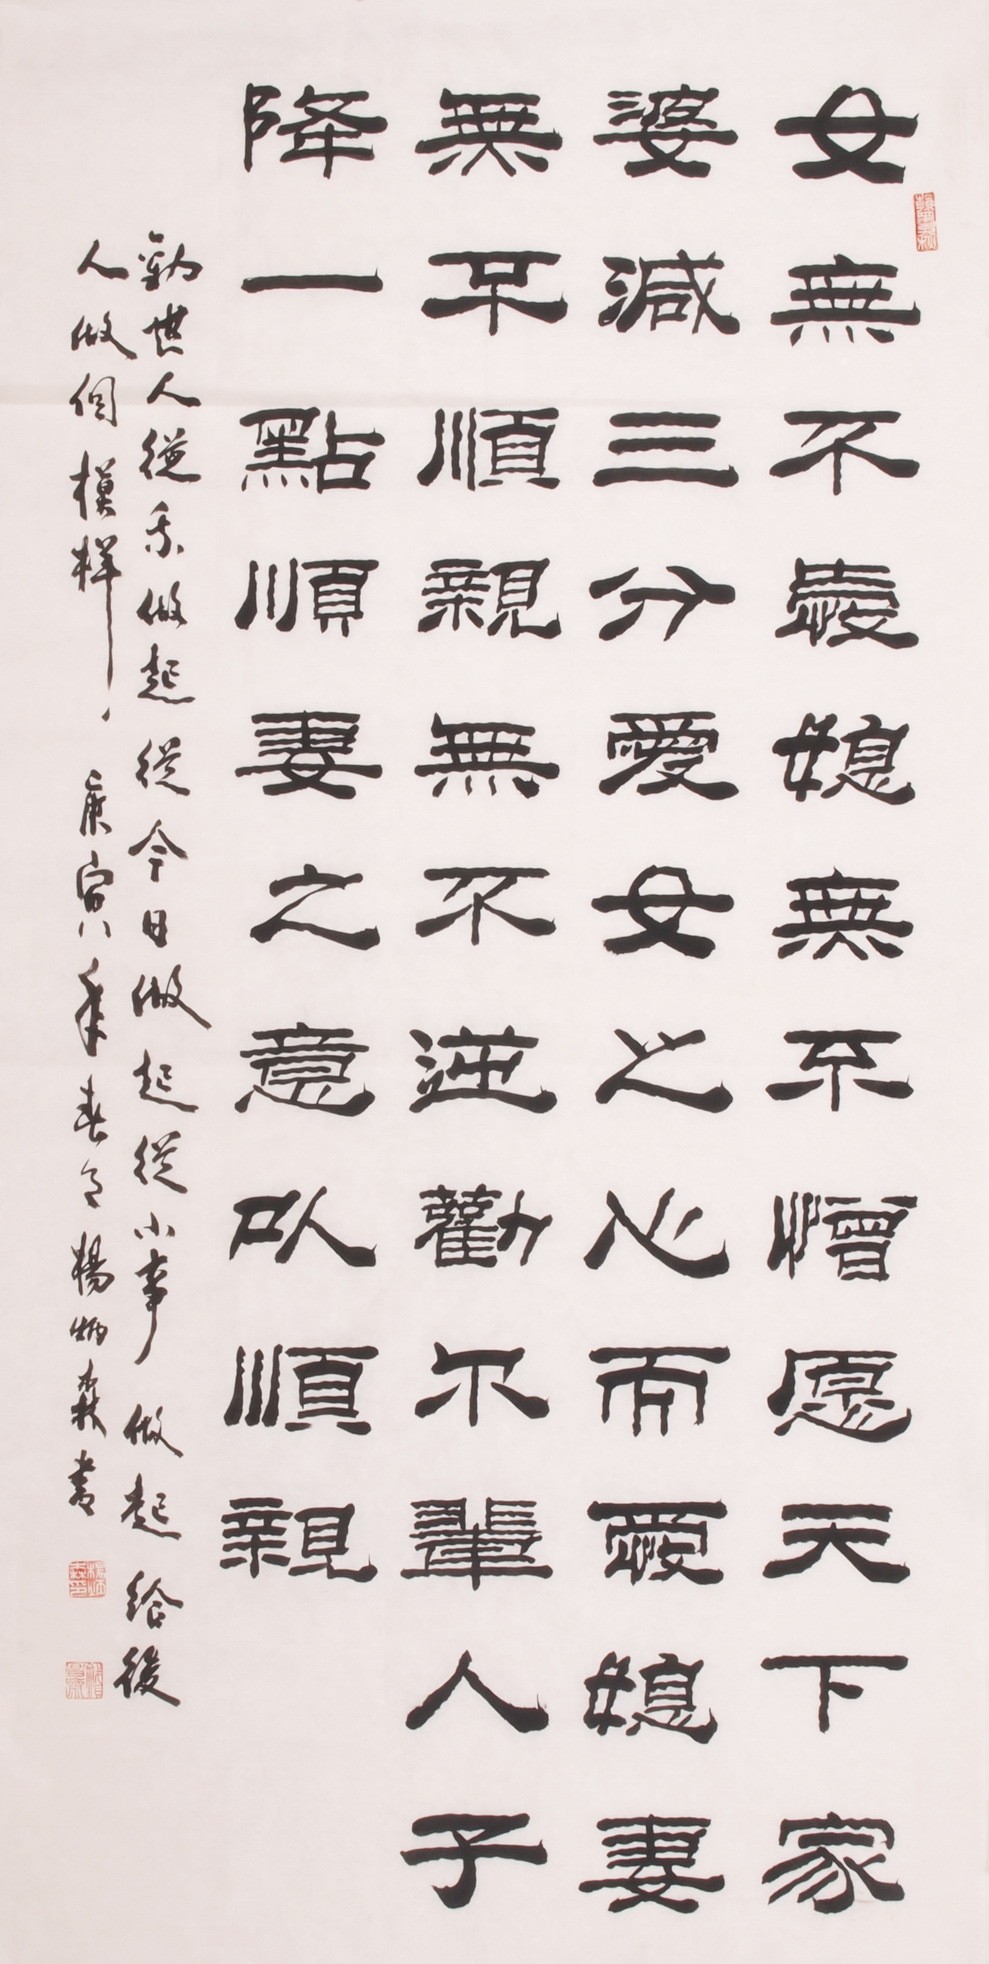 女無不愛媳無不憎愿天下家
婆減三分愛女之心而愛媳妻
無不順親無不逆勸尔輩人子
降一點順妻之意以順親
勸世人從我做起從今日做起從小事做起給後
人做個模样庚寅年春月楊炳森書